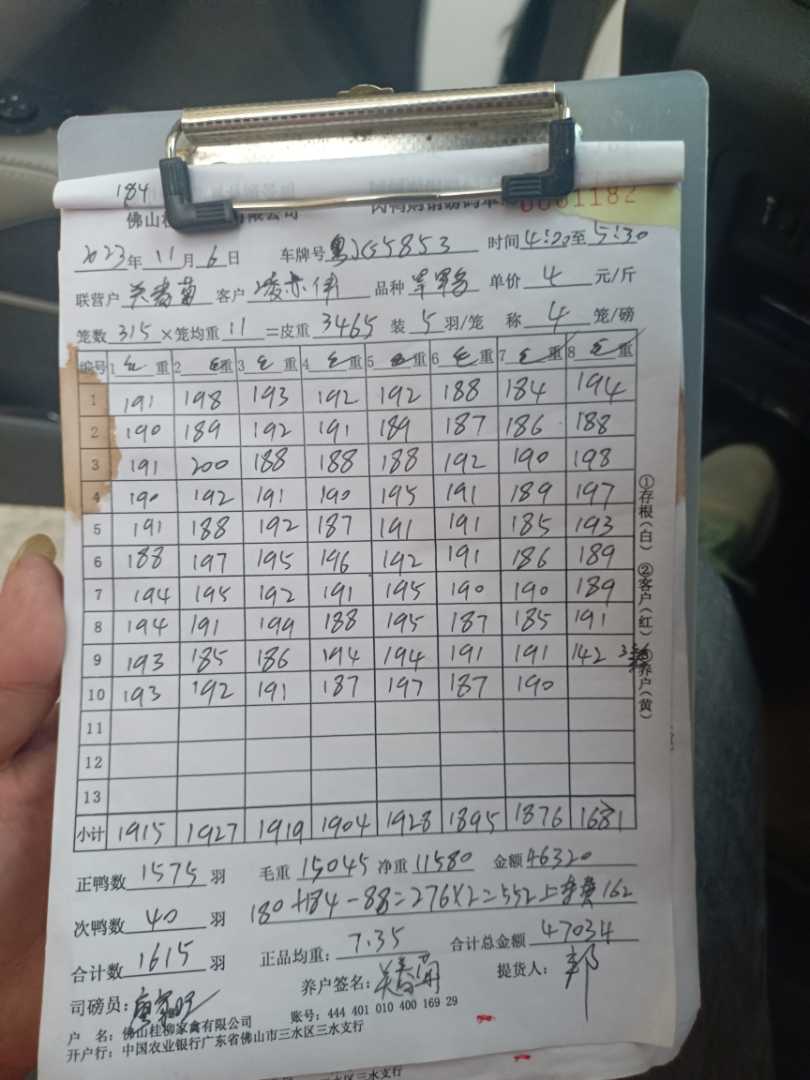 184
佛山桂 有限公司
0081182
2023年 11 月 6 日 车牌号 粤 5853 时间 4:20 至 5:30
联营户 客户 凌亦伟 品种 单价 4 元/斤
笼数 315 ×笼均重 11 =皮重 3465 装 5 羽/笼 称 4 笼/磅
编号 1 重 2 重 3 重 4 重 5 重 6 重 7 重 8 重
1 191 198 193 192 192 188 184 194
2 190 189 192 191 189 187 186 188
3 191 200 188 188 188 192 190 198
4 190 192 191 190 195 191 189 197
5 191 188 192 187 191 191 185 193
6 188 197 195 196 192 191 186 189
7 194 195 192 191 195 190 190 189
8 194 191 199 188 195 187 185 191
9 193 185 186 194 194 191 191 142
10 193 192 191 187 197 187 190
11
12
13
小计 1915 1927 1919 1904 1928 1895 1876 1681
①存根(白) ②客户(红) ③养户(黄)
正鸭数 1575 羽 毛重 15045 净重 11580 金额 46320
次鸭数 40 羽 180+184-88=276×2=552 上车费 162
合计数 1615 羽 正品均重: 7.35 合计总金额 47034
司磅员: 养户签名: 提货人: 郭
户 名: 佛山桂柳家禽有限公司 账号: 444 401 010 400 169 29
开户行: 中国农业银行广东省佛山市三水区三水支行
三水区三水支行